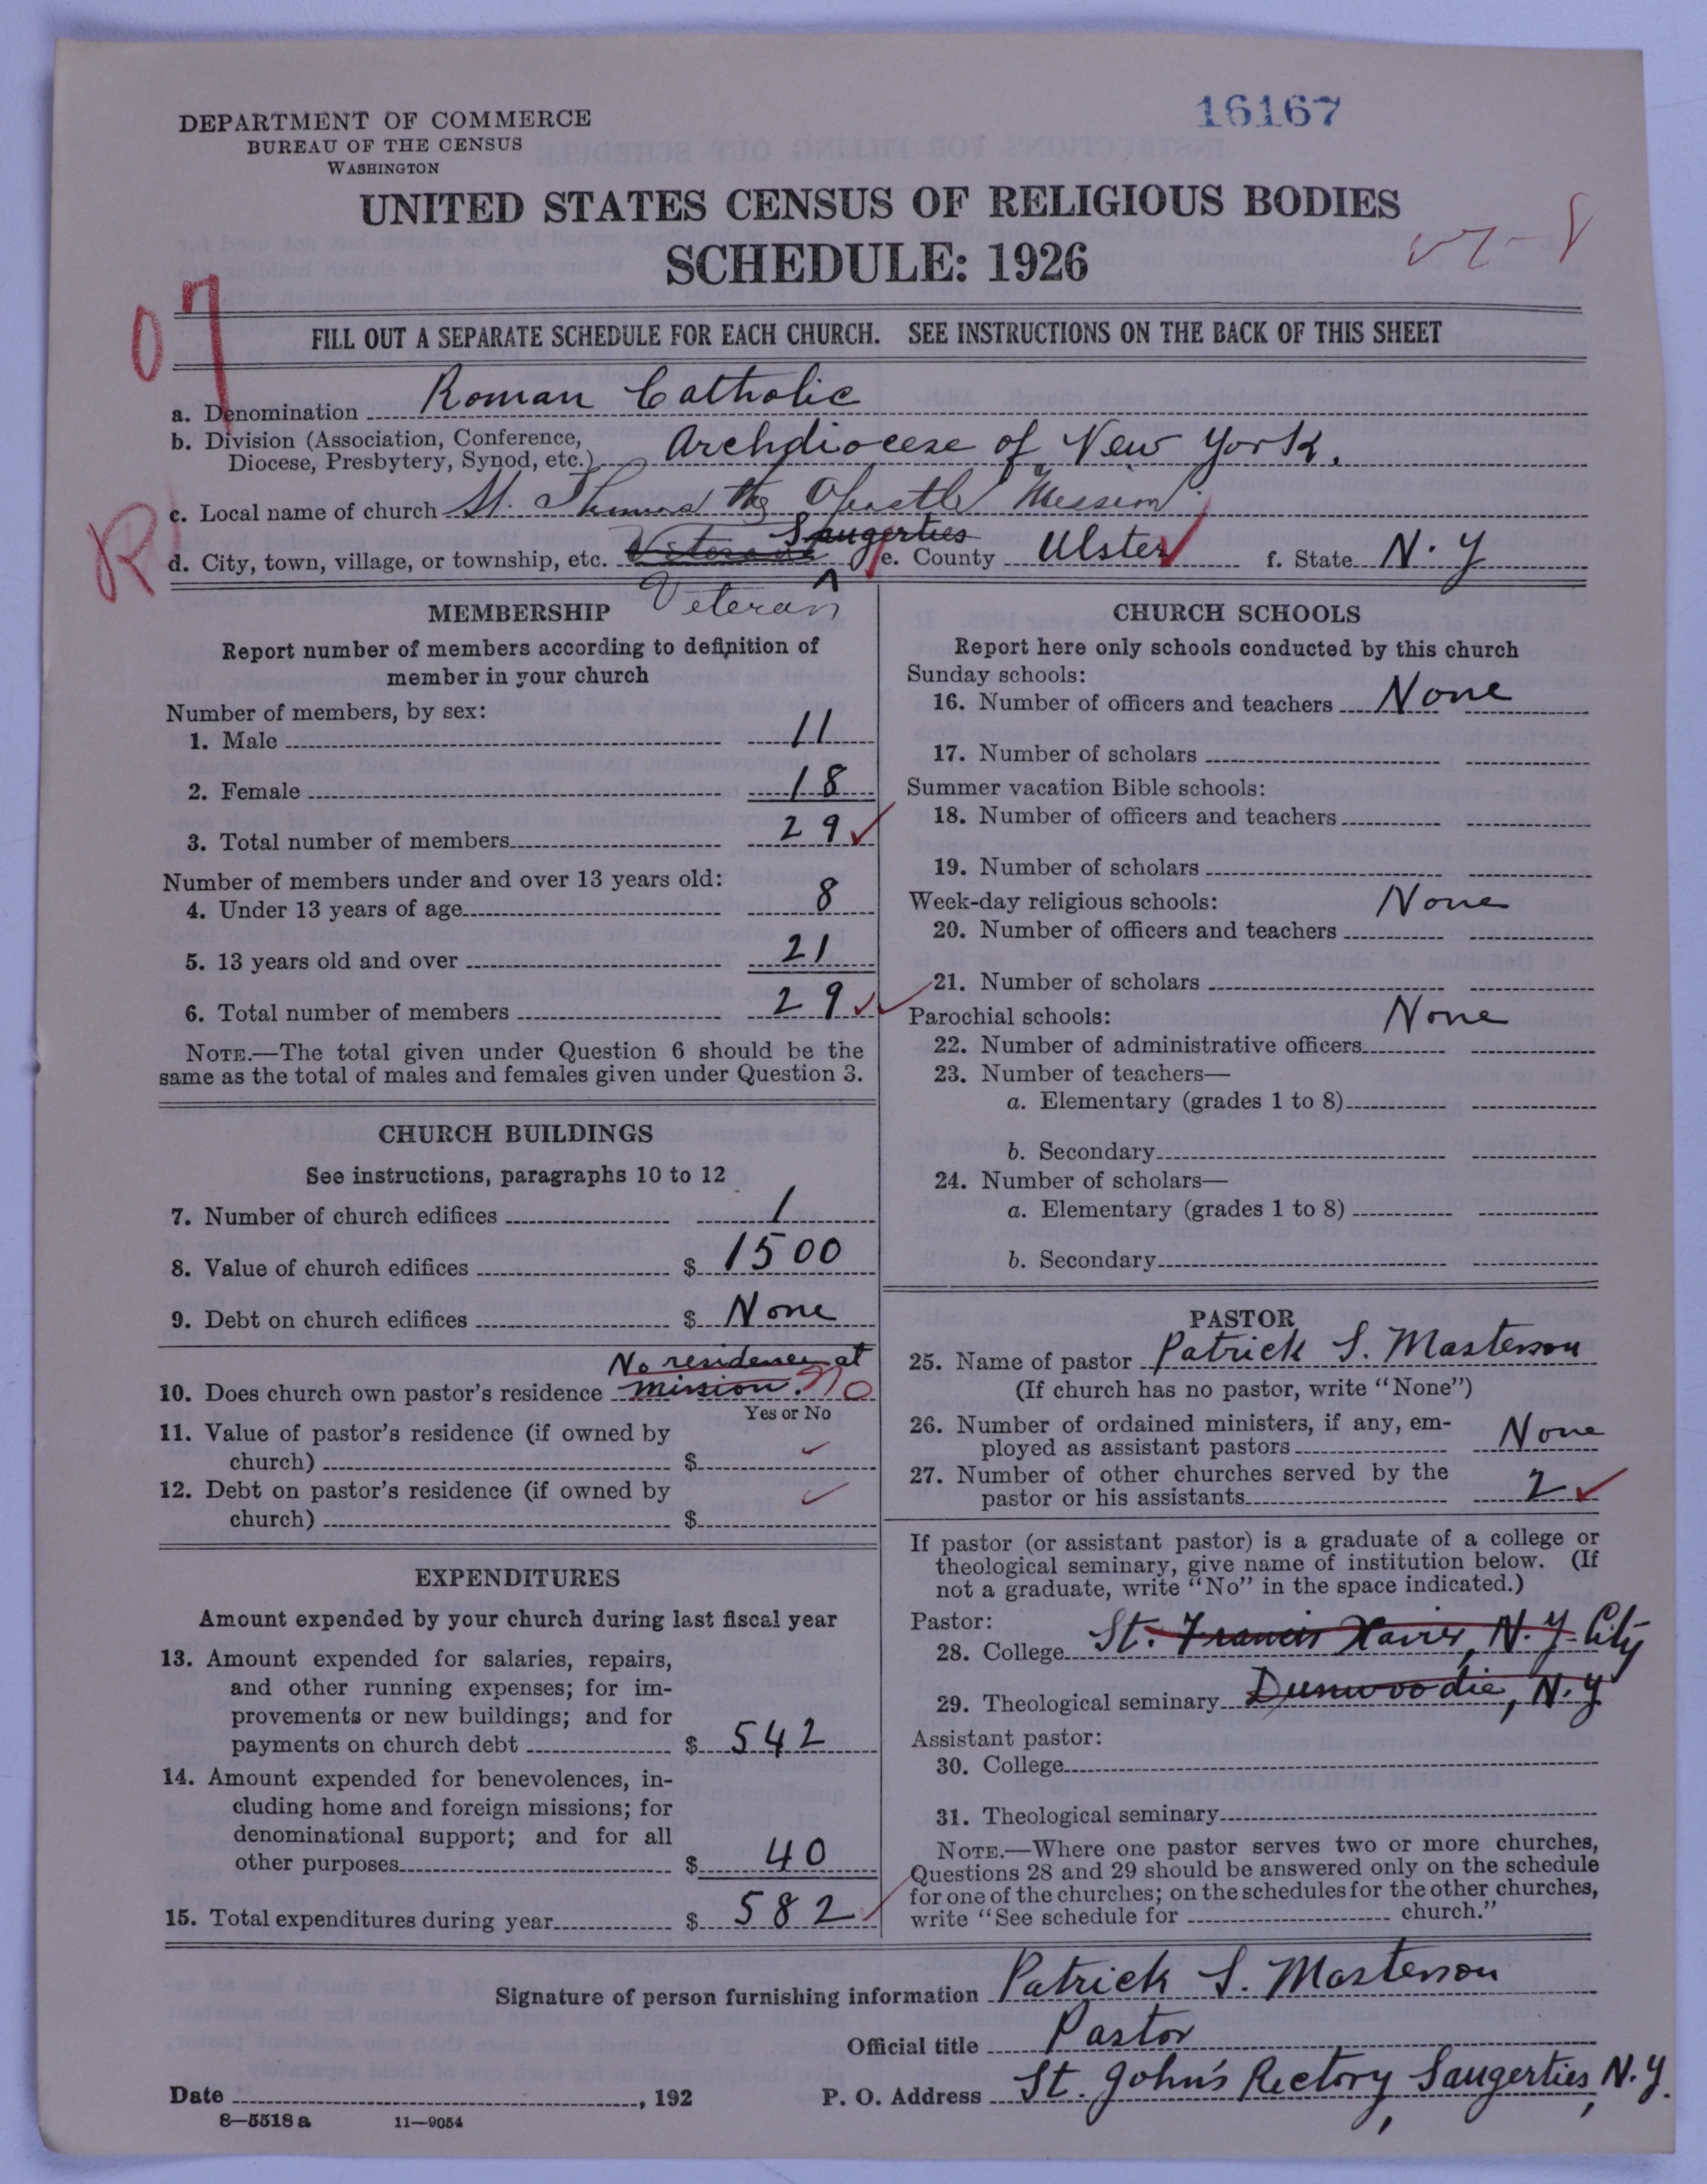 16167
DEPARTMENT OF COMMERCE
BUREAU OF THE CENSUS
WASHINGTON
UNITED STATES CENSUS OF RELIGIOUS BODIES
SCHEDULE: 1926
07
FILL OUT A SEPARATE SCHEDULE FOR EACH CHURCH. SEE INSTRUCTIONS ON THE BACK OF THIS SHEET
a. Denomination Roman Catholic
b. Division (Association, Conference,
Diocese, Presbytery, Synod, etc.) Archdiocese of New York.
R
c. Local name of church St. Thomas the Apostle Mission
Saugerties
d. City, town, village, or township, etc. e. County Ulster f. State N. Y
Veteran
MEMBERSHIP
Report number of members according to definition of
member in your church
Number of members, by sex:
1. Male 11
2. Female 18
3. Total number of members 29
Number of members under and over 13 years old:
4. Under 13 years of age 8
5. 13 years old and over 21
6. Total number of members 29
NOTE.—The total given under Question 6 should be the
same as the total of males and females given under Question 3.
CHURCH BUILDINGS
See instructions, paragraphs 10 to 12
7. Number of church edifices 1
8. Value of church edifices $ 1500
9. Debt on church edifices $ None
No residence at
10. Does church own pastor's residence mission. No
Yes or No
11. Value of pastor's residence (if owned by
church) $
12. Debt on pastor's residence (if owned by
church) $
EXPENDITURES
Amount expended by your church during last fiscal year
13. Amount expended for salaries, repairs,
and other running expenses; for im-
provements or new buildings; and for
payments on church debt $ 542
14. Amount expended for benevolences, in-
cluding home and foreign missions; for
denominational support; and for all
other purposes $ 40
15. Total expenditures during year $ 582
CHURCH SCHOOLS
Report here only schools conducted by this church
Sunday schools:
16. Number of officers and teachers None
17. Number of scholars
Summer vacation Bible schools:
18. Number of officers and teachers
19. Number of scholars
Week-day religious schools: None
20. Number of officers and teachers
21. Number of scholars
Parochial schools: None
22. Number of administrative officers
23. Number of teachers—
a. Elementary (grades 1 to 8)
b. Secondary
24. Number of scholars—
a. Elementary (grades 1 to 8)
b. Secondary
PASTOR
25. Name of pastor Patrick S. Masterson
(If church has no pastor, write "None")
26. Number of ordained ministers, if any, em-
ployed as assistant pastors None
27. Number of other churches served by the
pastor or his assistants 2
If pastor (or assistant pastor) is a graduate of a college or
theological seminary, give name of institution below. (If
not a graduate, write "No" in the space indicated.)
Pastor:
28. College St. Francis Xavier, N. Y. City
29. Theological seminary Dunwoodie, N. Y.
Assistant pastor:
30. College
31. Theological seminary
NOTE.—Where one pastor serves two or more churches,
Questions 28 and 29 should be answered only on the schedule
for one of the churches; on the schedules for the other churches,
write "See schedule for church."
Signature of person furnishing information Patrick S. Masterson
Official title Pastor
Date , 192 P. O. Address St. John's Rectory, Saugerties, N. Y.
8—5518 a 11—9054